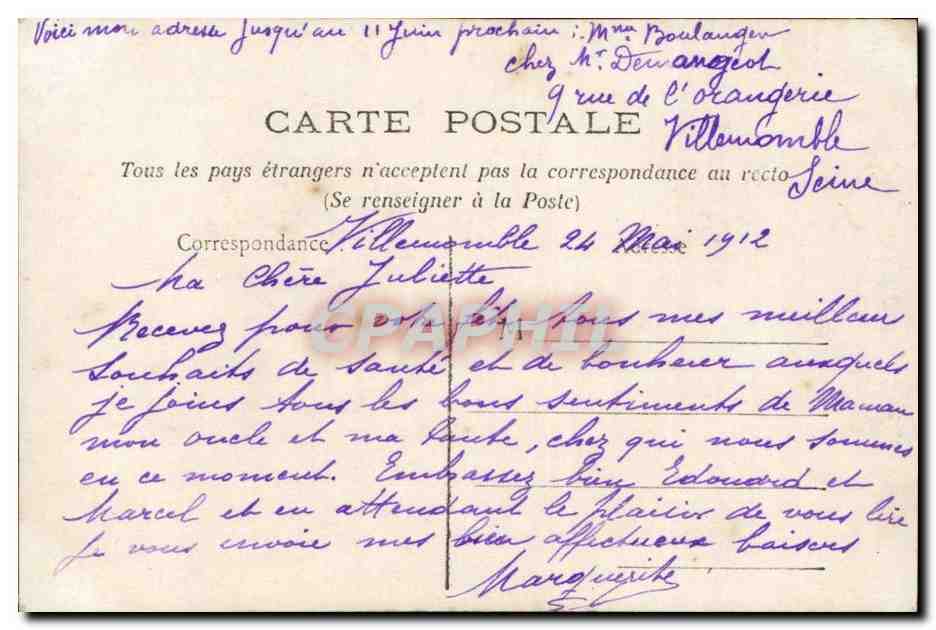 Voici mon adresse jusqu'au 11 Juin prochain : Mme Boulanger
chez Mr. Demangeot
9 rue de l'orangerie
Villemomble
Seine
CARTE POSTALE
Tous les pays étrangers n'acceptent pas la correspondance au recto
(Se renseigner à la Poste)
Correspondance Adresse
Villemomble 24 Mai 1912
Ma Chère Juliette
Recevez pour votre fête tous mes meilleur
souhaits de santé et de bonheur auxquels
je joins tous les bons sentiments de Maman
mon oncle et ma tante, chez qui nous sommes
en ce moment. Embrassez bien Edouard et
Marcel et en attendant le plaisir de vous lire
je vous envoie mes bien affectueux baisers
Marguerite
CPAPHIL